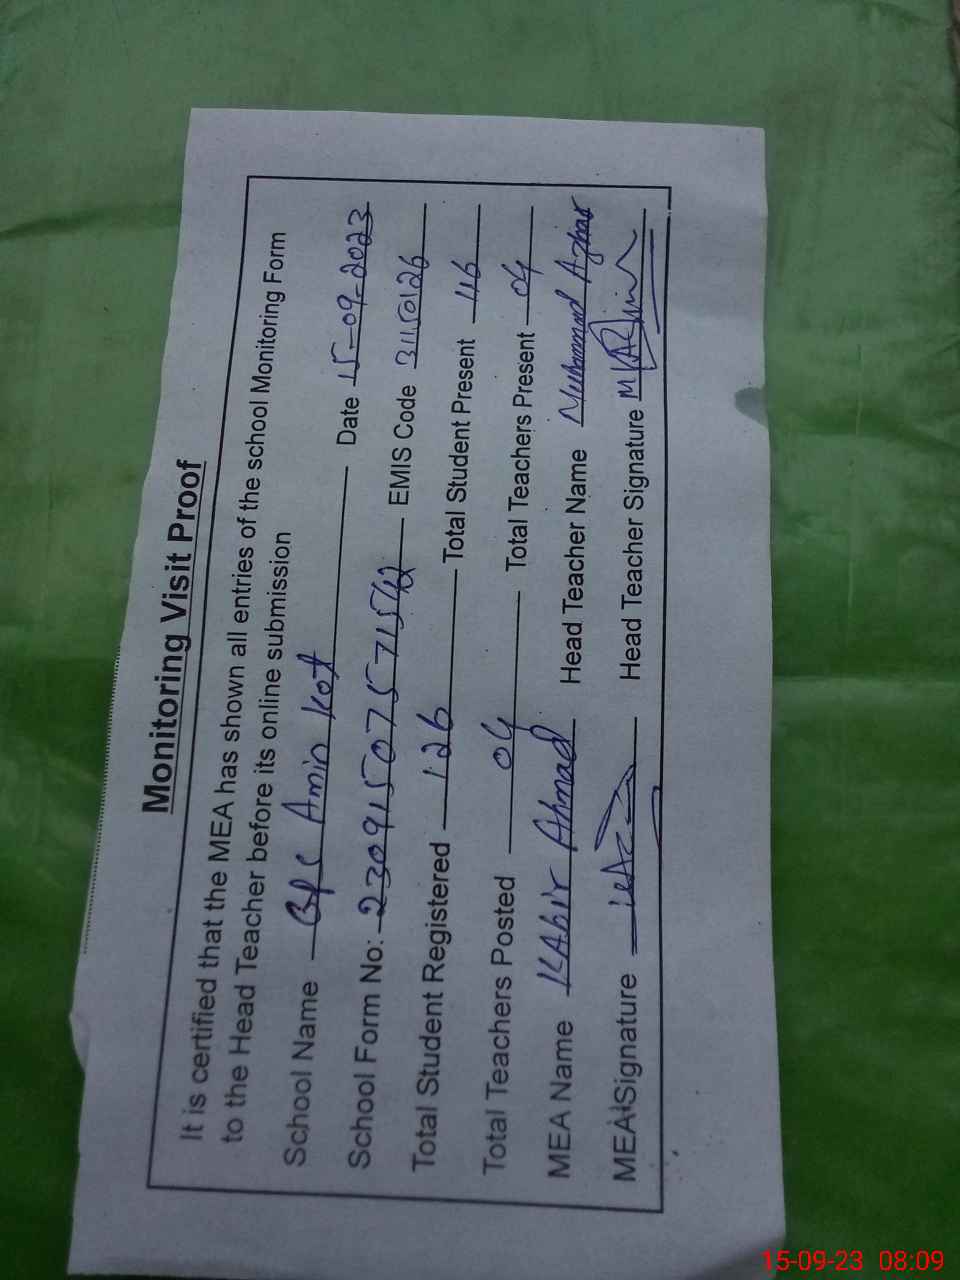 Monitoring Visit Proof
It is certified that the MEA has shown all entries of the school Monitoring Form
to the Head Teacher before its online submission
School Name Amin Kot Date 15-09-2023
School Form No: 23091507571542 EMIS Code 31150126
Total Student Registered 126 Total Student Present 116
Total Teachers Posted 04 Total Teachers Present 04
MEA Name KAbir Ahmad Head Teacher Name Muhammad Azhar
MEA Signature Head Teacher Signature
15-09-23 08:09